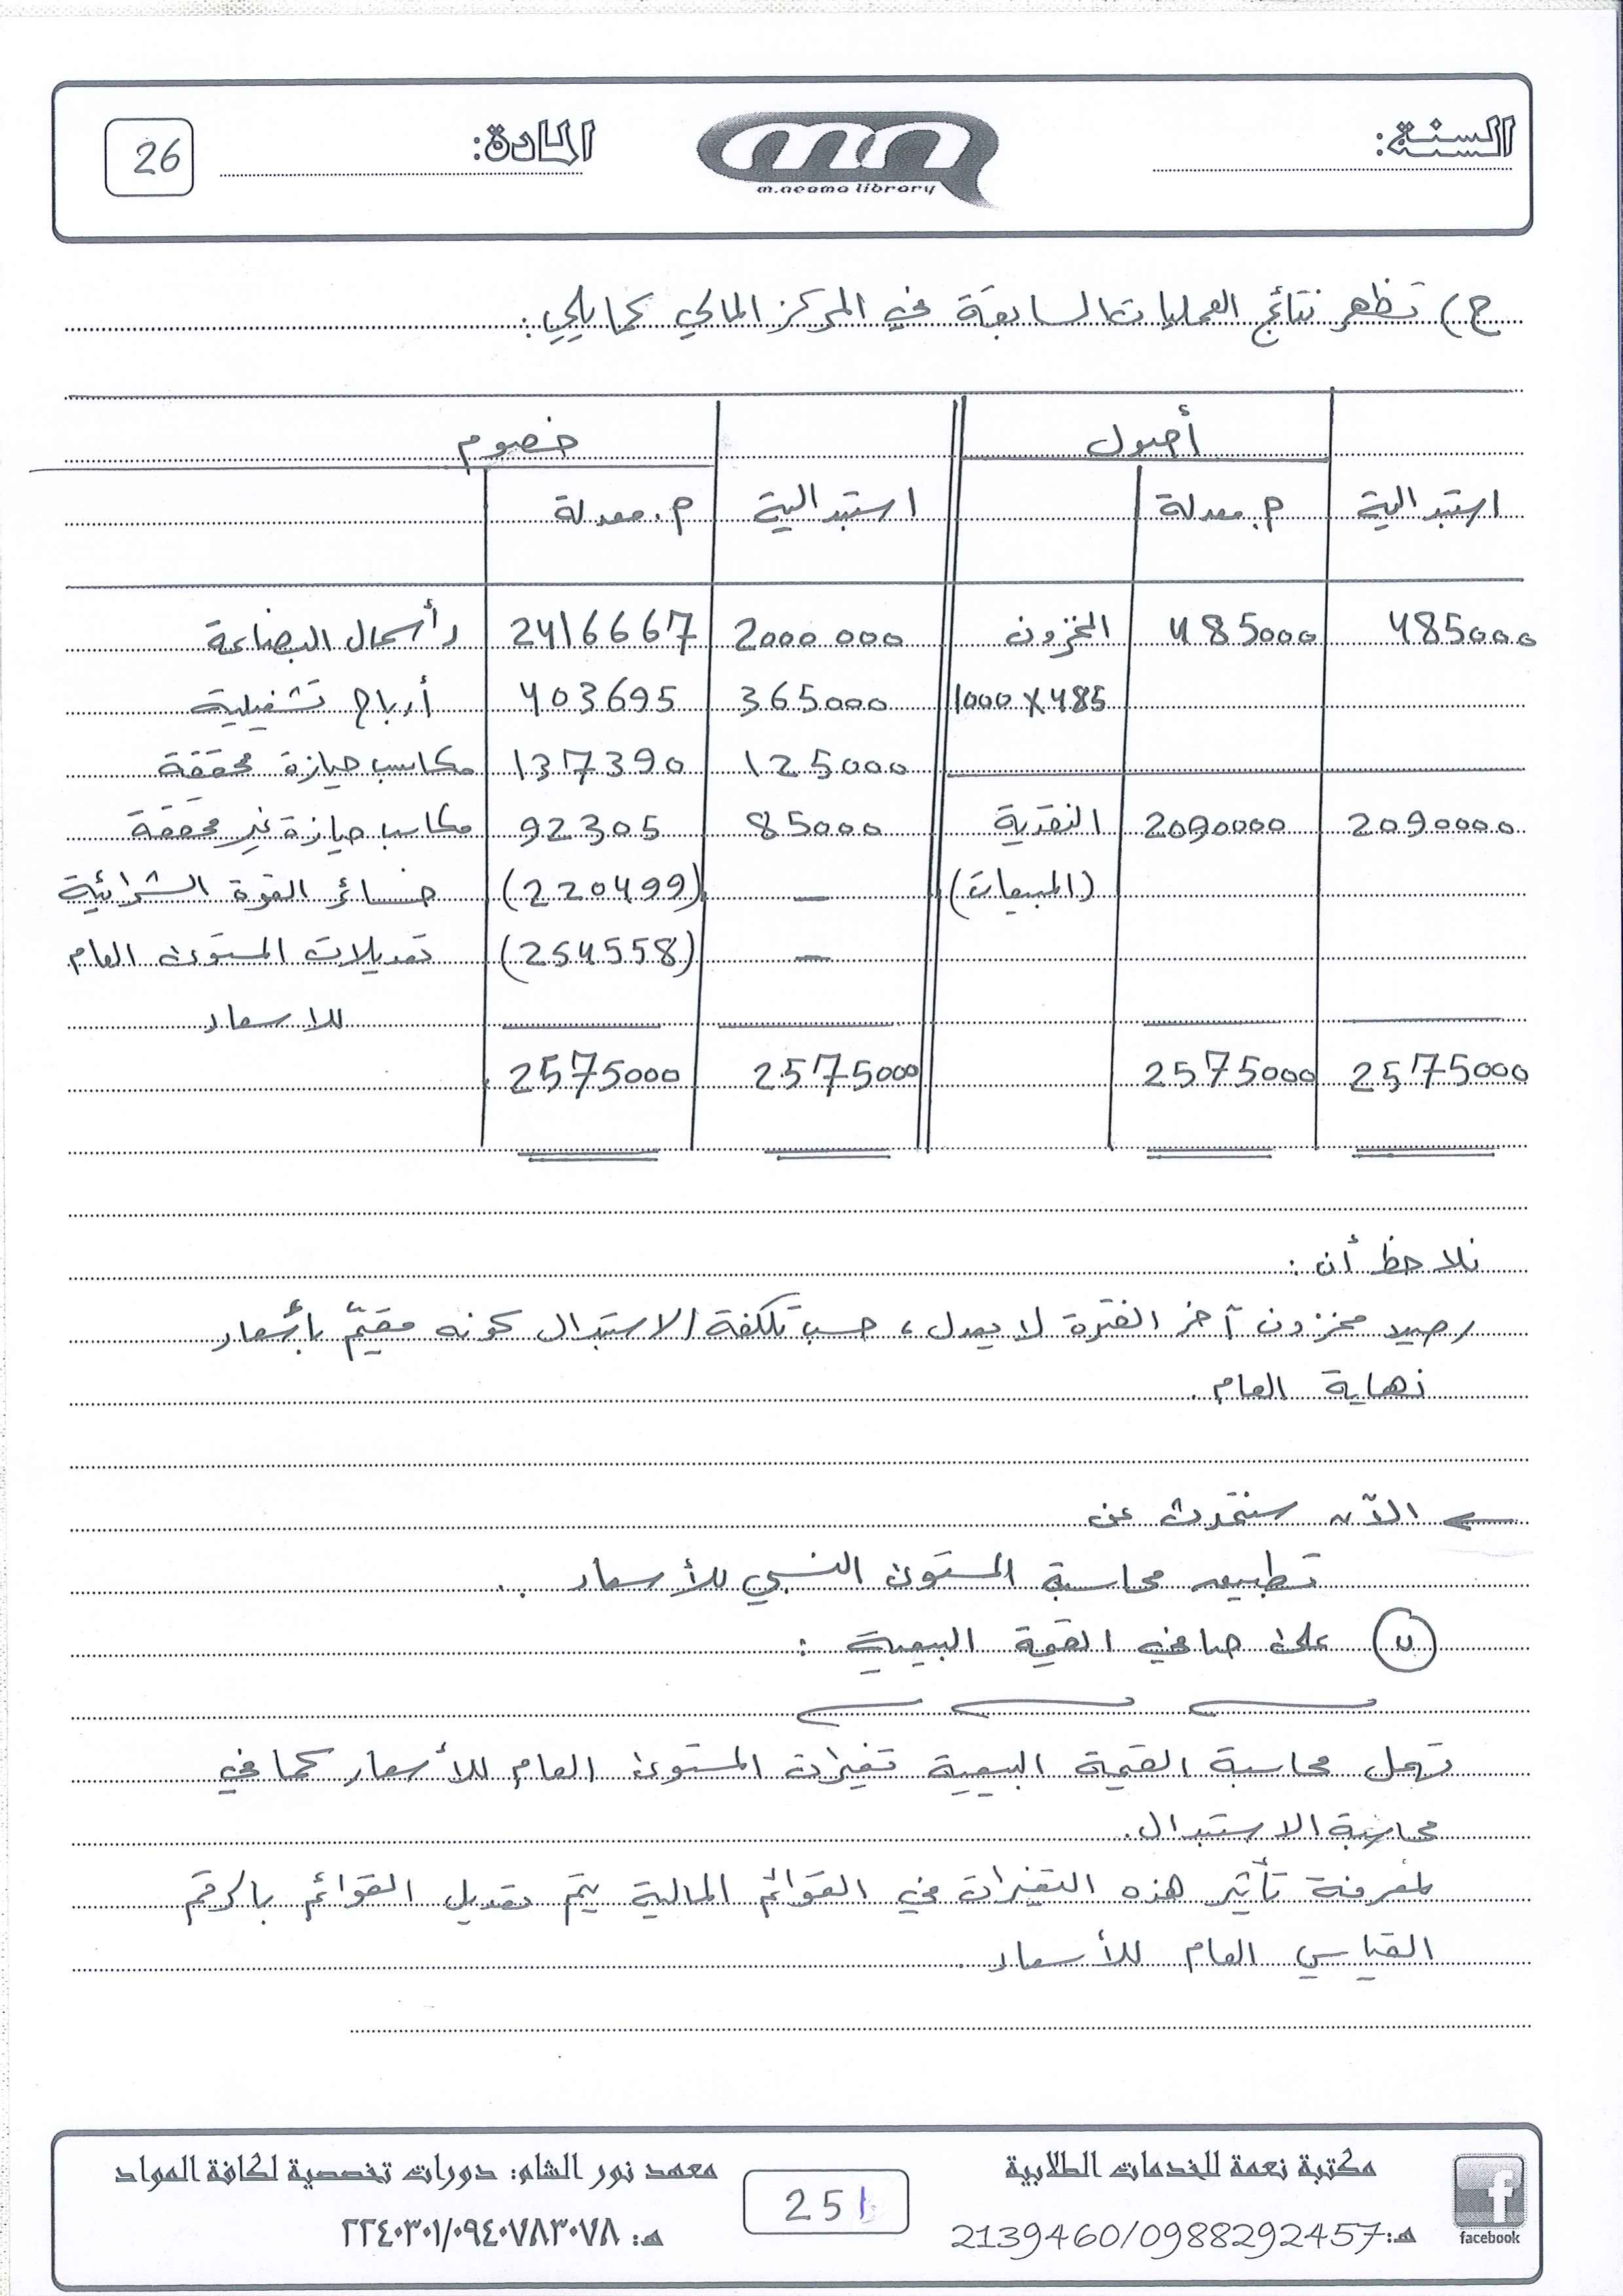 السنة:
المادة:
26
m.neama library
ج) تظهر نتائج العمليات السابقة في المركز المالي كما يلي:
أصول خصوم
استبدالية م. معدلة استبدالية م. معدلة
485000 485000 المخزون 2000000 2416667 رأسمال البضاعة
1000 × 485 365000 403695 أرباح تشغيلية
125000 137390 مكاسب حيازة محققة
2090000 2090000 النقدية 85000 92305 مكاسب حيازة غير محققة
(المبيعات) — (220499) خسائر القوة الشرائية
— (254558) تعديلات المستوى العام
للاسعار
2575000 2575000 2575000 2575000
نلاحظ أن:
رصيد مخزون آخر الفترة لا يعدل، حسب تكلفة الاستبدال كونه مقيّم بأسعار
نهاية العام.
← الآن سنتحدث عن
تطبيق محاسبة المستوى النسبي للأسعار..
ب على صافي القيمة البيعية:
تهمل محاسبة القيمة البيعية تغيرات المستوى العام للأسعار كما في
محاسبة الاستبدال.
لمعرفة تأثير هذه التغيرات في القوائم المالية يتم تعديل القوائم بالرقم
القياسي العام للأسعار.
مكتبة نعمة للخدمات الطلابية
هـ: 2139460/0988292457
facebook
251
معهد نور الشام: دورات تخصصية لكافة المواد
هـ: ٢٢٤٠٣٠١/٠٩٤٠٧٨٣٠٧٨